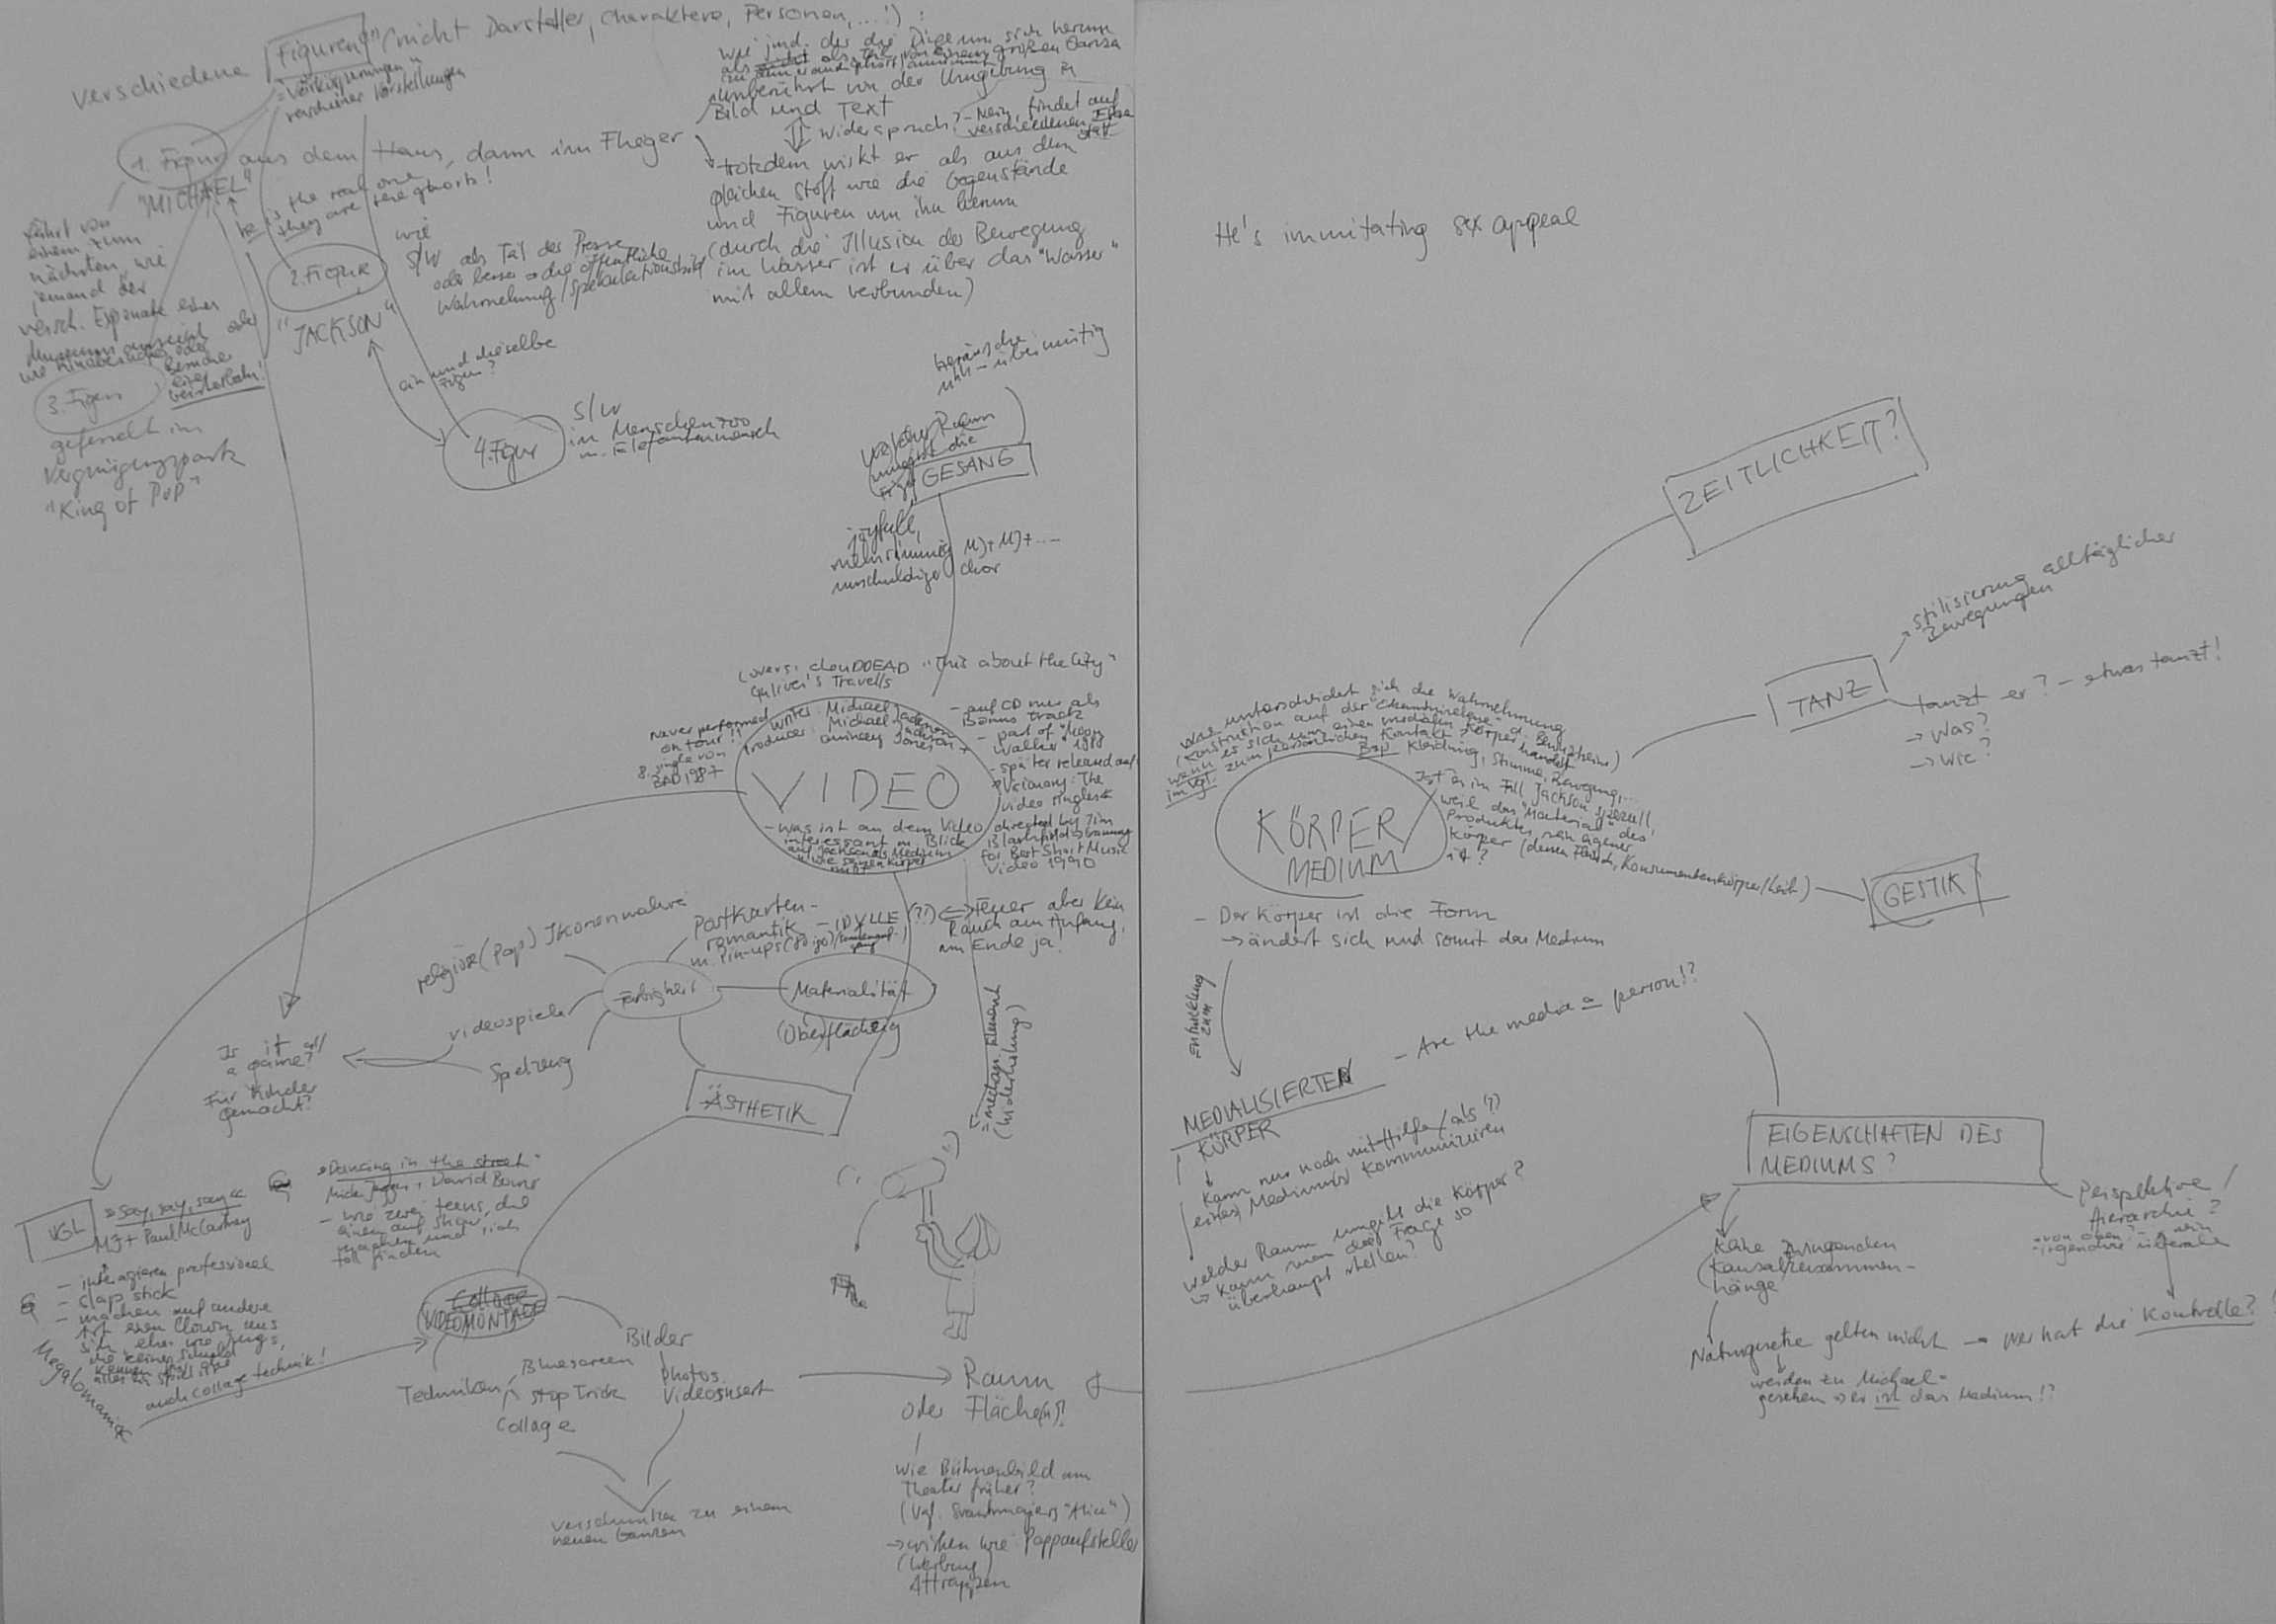 verschiedene "Figuren" (nicht Darsteller, Charaktere, Personen,...!):
= Verkörperungen
verschiener Vorstellungen
1. Figur aus dem Haus, dann im Flieger
"MICHAEL"
he is the real one
they are the ghosts!
fährt von
einem zum
nächsten, wie
jemand der
versch. Exponate eines
Museums ansieht oder
3. Figur
gefesselt im
Vergnügungspark
"King of Pop"
2. Figur
"JACKSON"
wie
S/W als Teil der Presse
oder besser die öffentliche
ein und dieselbe
Figur?
4. Figur
S/W
im Menschenzoo
m. Elefantenmensch
wie jmd. der die Dinge um sich herum
unberührt von der Umgebung in
Bild und Text
Widerspruch? - Nein, findet auf
verschiedenen
statt
trotzdem wirkt er als aus dem
gleichen Stoff wie die Gegenstände
und Figuren um ihn herum
(durch die Illusion der Bewegung
im Wasser ist er über das "Wasser"
mit allem verbunden)
Geräusche
uhh - übermütig
welcher Raum
umgibt die
Figur
GESANG
joyfull,
mehrstimmig MJ + MJ + ...
unschuldiger Chor
Covers: clouDDEAD "This about the City"
Guliver's Travells
never performed
on tour!!
8. Single von
BAD 1987
writer: Michael Jackson
Producer: Michael Jackson +
Quincey Jones
VIDEO
- Was ist an dem Video
interessant m. Blick
auf Jackson als Medium
- auf CD nur als
Bonus track
- part of "Moon
Walker" 1988
- später released auf
"Visionary: The
Video Singles"
directed by Jim
Blashfield
for Best Short Music
Video 1990
religiöse (Pop) Ikonen
Postkarten-
romantik - IDYLLE (?!)
Feuer aber kein
Rauch am Anfang,
am Ende ja!
Farbigkeit
Materialität
(Oberflächen)
Videospiele
Spielzeug
ÄSTHETIK
(Wiederholung)
Is it all
a game?
Für Kinder
gemacht?
VGL
"Say, say, say"
MJ + Paul McCartney
- interagieren professionel
- slap stick
- machen auf andere
Art einen Clown aus
sich, eher wie Jungs,
auch collage technik!
Megalomania
"Dancing in the street"
Mick Jagger + David Bowie
- wie zwei teens, die
einen auf Show
machen und sich
toll finden
Collage
VIDEOMONTAGE
Bilder
Photos
Videoinsert
Techniken
Bluescreen
Stop Trick
Collage
verschmelzen zu einem
neuen Ganzen
Raum
oder Fläche(n)?
wie Bühnenbild am
Theater früher?
(Vgl. Svankmajers "Alice")
→ wirken wie Pappaufsteller
(Werbung)
Attrappen
He's immitating sex appeal
ZEITLICHKEIT?
TANZ
Stilisierung alltäglicher
Bewegungen
tanzt er? - etwas tanzt!
→ Was?
→ Wie?
GESTIK
Wie unterscheidet sich die Wahrnehmung
wenn es sich um einen medialen Körper handelt
im Vgl. zum persönlichen Kontakt
Bsp Kleidung, Stimme, Bewegung,...
Ist es im Fall Jackson speziell,
weil das "Material" des
Produktes sein eigener
Körper
ist?
KÖRPER/
MEDIUM
- Der Körper ist die Form
→ ändert sich und somit das Medium
Entwicklung
zum
MEDIALISIERTEN
KÖRPER
- Are the media a person!?
Kann nur noch mit Hilfe/als (?)
eines Mediums kommunizieren
Welcher Raum umgibt die Körper?
→ Kann man die Frage so
überhaupt stellen?
EIGENSCHAFTEN DES
MEDIUMS?
Perspektive/
Hierarchie?
- von oben? - nein
- irgendwie überall
Keine zwingenden
Kausalzusammen-
hänge
Naturgesetze gelten nicht → wer hat die Kontrolle?
werden zu Michael-
gesetzen → er ist das Medium!?